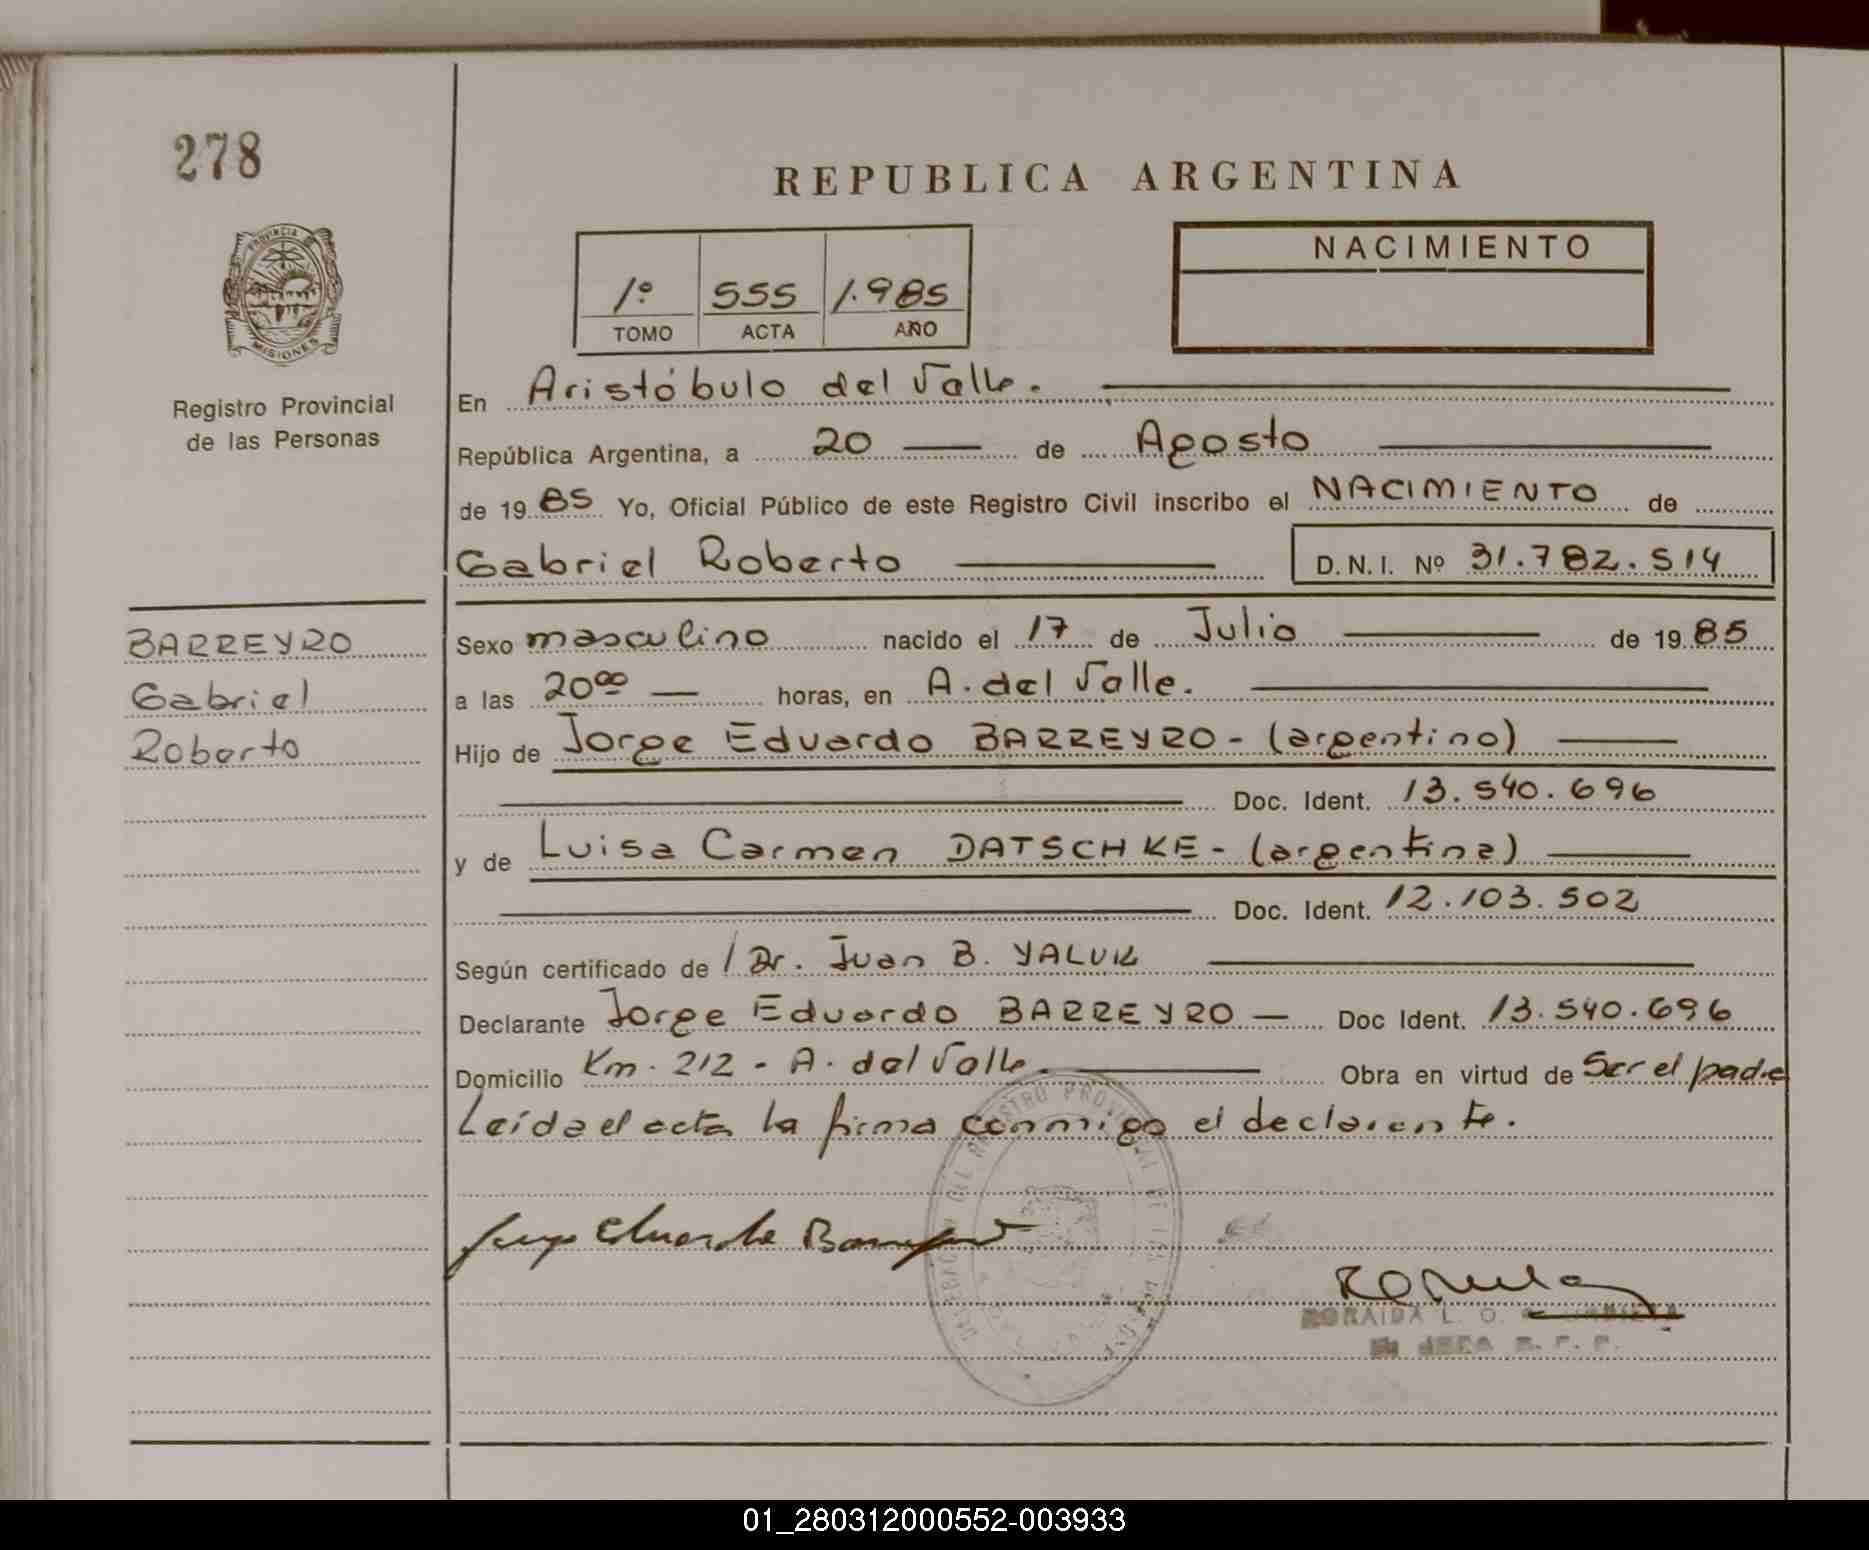 278
REPUBLICA ARGENTINA
PROVINCIA DE
MISIONES
Registro Provincial
de las Personas
1º 555 1.985
TOMO ACTA AÑO
NACIMIENTO
En Aristóbulo del Valle.
República Argentina, a 20 de Agosto
de 1985 Yo, Oficial Público de este Registro Civil inscribo el NACIMIENTO de
Gabriel Roberto D.N.I. Nº 31.782.514
BARREYRO
Gabriel
Roberto
Sexo masculino nacido el 17 de Julio de 1985
a las 20⁰⁰ horas, en A. del Valle.
Hijo de Jorge Eduardo BARREYRO - (argentino)
Doc. Ident. 13.540.696
y de Luisa Carmen DATSCHKE - (argentina)
Doc. Ident. 12.103.502
Según certificado de Dr. Juan B. YALUK
Declarante Jorge Eduardo BARREYRO Doc Ident. 13.540.696
Domicilio Km. 212 - A. del Valle. Obra en virtud de Ser el padre
Leída el acta la firma conmigo el declarante.
Jorge Eduardo Barreyro
DEL REGISTRO PROVINCIAL DE LAS
ZORAIDA L. O.
01_280312000552-003933